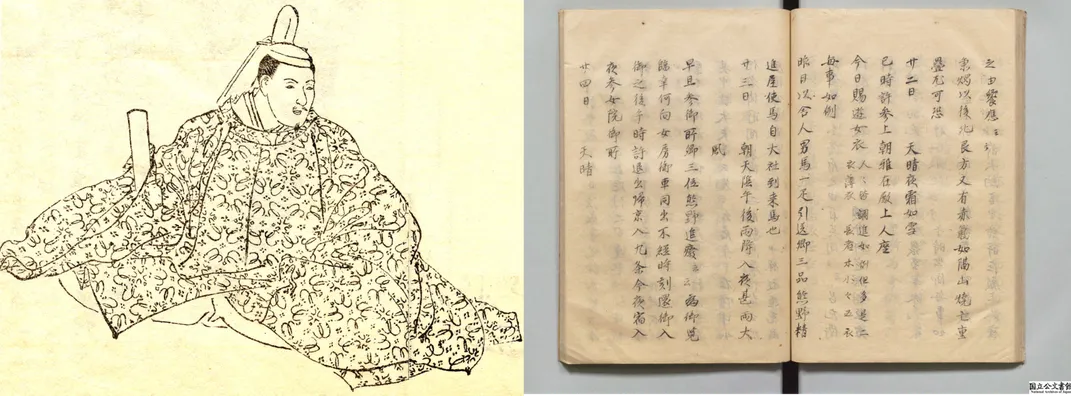 之由饗應云々
秉燭以後北艮方又有赤氣如隔山燒亡重
疊尤可恐
廿二日 天晴夜霜如雪
巳時許參上朝雅在殿上人座
今日賜遊女衣 人々皆調進如例但多是二
衣薄衣 長者 小々五衣
每事如例
昨日以舍人男馬一疋引送卿三品熊野精
進屋使馬自大社到來馬也
廿三日 朝天陰午後雨降入夜甚雨大
風
早旦參御所卿三位熊野進發云々為御覽
臨幸何向女房御車同出不經時刻還御入
御之後午時許退出歸京入九条今夜宿入
夜參女院御所
廿四日 天晴
国立公文書館
National Archives of Japan